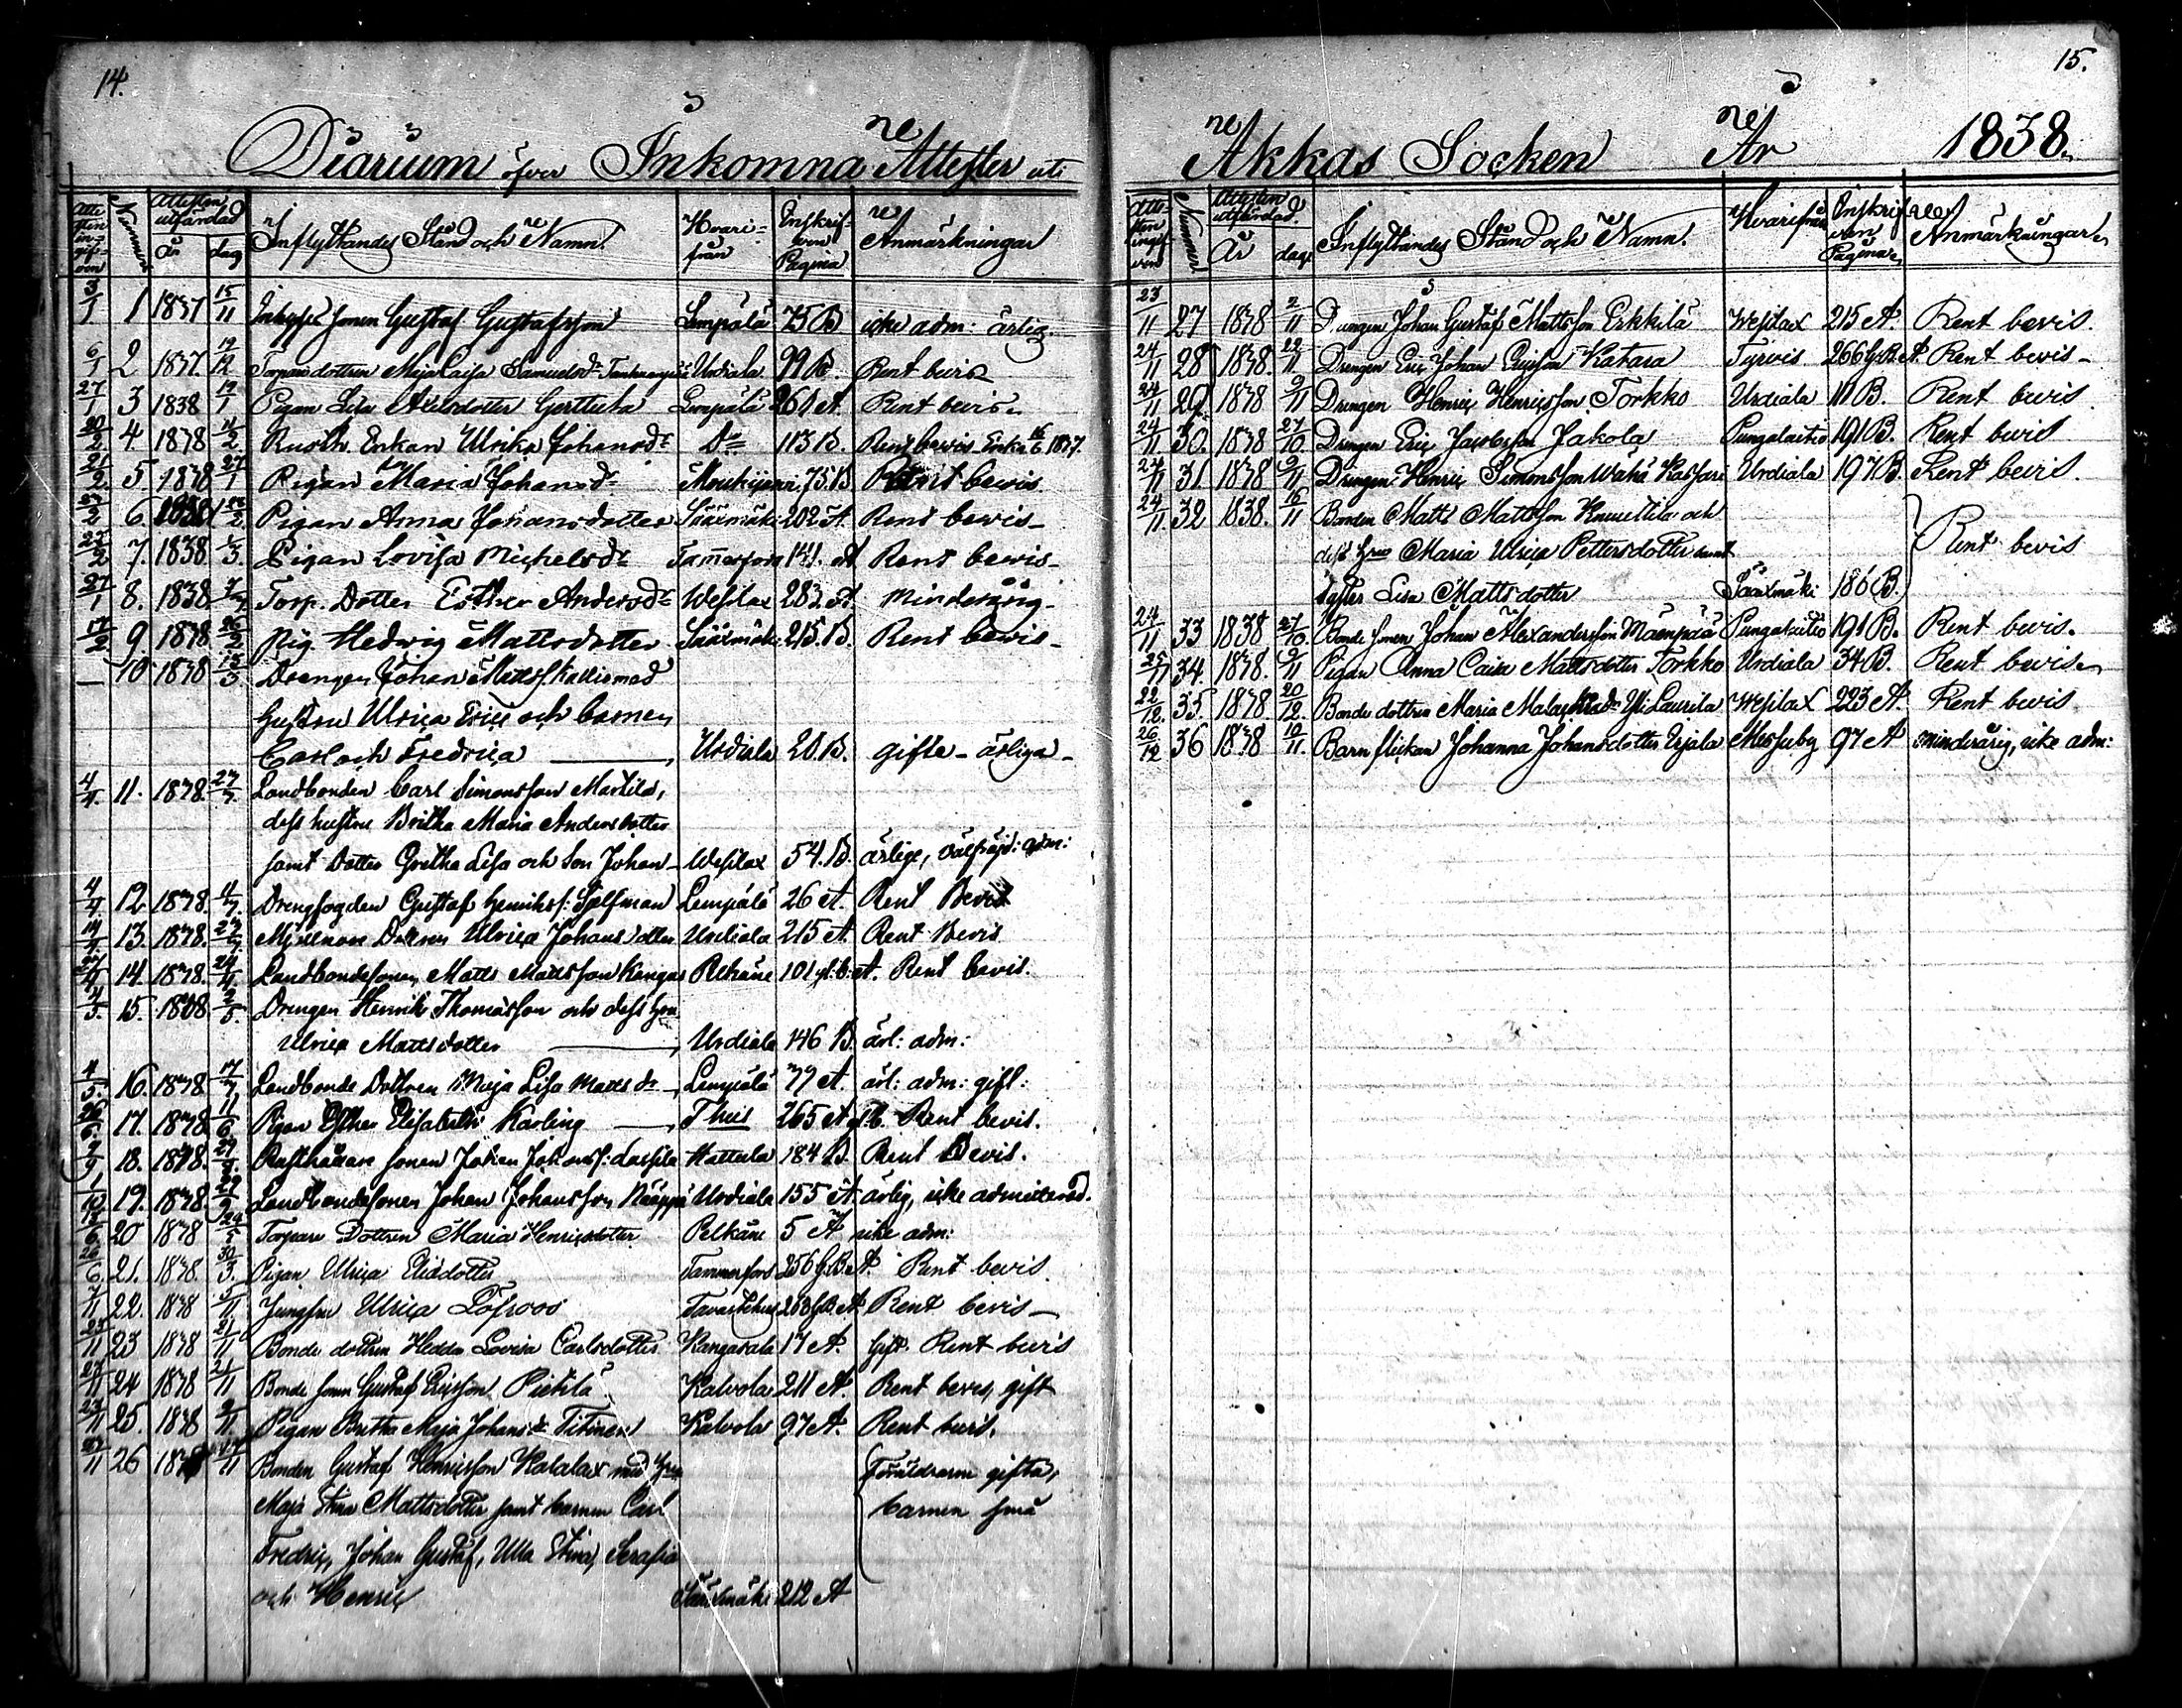 14.
Diarium öfver Inkomna Attester uti
Attesten ingifven Nummer Attesten utfärdad År dag Inflyttandes Stånd och Namn. Hvarifrån Inskrifven Pagina Anmärkningar
3/1 1 1837 15/11 Inhyses sonen Gustaf Gustafsson Lempälä 75 B icke adm: ärlig.
6/1 2 1837. 19/12 Torpare dottren Maja Caisa Samuelsdr Urdiala 99 B. Rent bevis
27/1 3 1838 19/1 Pigan Lisa Axelsdotter Lempälä 261 A. Rent bevis.
20/2 4 1838 11/2 Rusth. Enkan Ulrika Johansdr Do 113 B. Rent bewis Enka 16/6 1837.
21/2 5 1838 27/1 Pigan Maria Johansdr 75. B Rent bewis.
27/2 6. 1838 Pigan Anna Johansdotter Sääxmäki 202 A. Rent bewis-
27/2 7. 1838 1/3. Pigan Lovisa Michelsdr Tammerfors 141. A Rent bewis-
27/1 8. 1838 Torp. Dotter Esther Andersdr Wesilax 283 A. Minderårig-
17/2 9 1838 26/2 Pig. Hedwig Mattsdotter Sääxmäki 215. B. Rent bewis-
— 10 1838 15/3. Drengen Johan Mattss Kallis med
hustru Ulrica Erics och barnen
Carl och Fredrica Urdiala 20. B. gifte - ärliga -
4/4. 11. 1838. 27/3. Landbonden Carl Simonsson Marttila,
dess hustru Britha Maria Andersdotter
samt Dotter Gretha Lisa och Son Johan Wesilax 54. B. ärlige, välfräjd: adm:
4/4 12 1838. Drengfogden Gustaf Henrikss: Sjelfman Lempälä 26 A. Rent Bevis
14/4 13. 1838. Dottren Ulrica Johansdotter Urdiala 215 A. Rent Bevis
14. 1838. 24/4. Landbondesonen Matts Mattsson Kangas Pelkäne 101 gl: b: A. Rent bevis.
4/5. 15. 1838 2/5. Drengen Henrik Thomasson och dess hru
Ulrica Mattsdotter Urdiala 146 B. ärl: adm:
4/5. 16. 1838 Landbonde Dottren Maja Lisa Mattsdr Lempälä 79 A. ärl: adm: gift:
17. 1838 11/6 Pigan Esther Elisabeth Karling Thus 265 A gl: b. Rent bevis.
18. 1838. Rusthållare sonen Johan Johanss: Lassila Hattula 184 B. Rent Bevis.
1/10 19. 1838. Landbondesonen Johan Johansson Näppi Urdiala 155 A. ärlig, icke admitterad.
20 1838 Torpare Dottren Maria Henricsdotter Pelkäne 5 A icke adm:
26/6. 21. 1838. 30/3. Pigan Ulrica Eliedotter Tammerfors 256 G.B. A. Rent bevis.
22. 1838 5/11 Jungfru Ulrica Löfroos Tavastehus 268 G.B. A. Rent bevis-
23/11 23 1838 21/11 Bonde dottren Hedda Lovisa Carlsdotter Kangasala 17 A. Gift. Rent bevis
23/11 24 1838 21/11 Bonde sonen Gustaf Ericsson Pietilä Kalvola 211 A. Rent bevis, gift
23/11 25. 1838 2/11. Pigan Britha Maja Johansdr Kalvola 97 A. Rent bevis.
23/11 26 1838 Bonden Gustaf Henricsson med hru
Maja Stina Mattsdotter samt barnen Carl
Fredric, Johan Gustaf, Ulla Stina, Serafia
och Henric Sääxmäki 212 A Föräldrarne gifta,
barnen små
15.
Akkas Socken År 1838.
Attesten ingifven Nummer Attesten utfärdad. År dag. Inflyttandes Stånd och Namn. Hvarifrån Inskrifven Pagina Anmärkningar
23/11 27 1838 2/11 Drengen Johan Gustaf Mattsson Erkkilä Wesilax 215 A. Rent bevis.
24/11 28 1838. 22/11 Drengen Eric Johan Ericsson Katara Tyrvis 266 G.B. A. Rent bevis-
24/11 29. 1838 9/11 Drengen Henric Henricsson Torkko Urdiala 111 B. Rent bevis
24/11. 30. 1838 27/10. Drengen Eric Jacobsson Jakola Pungalaitio 191 B. Rent bevis
24/11 31. 1838 9/11 Drengen Henric Simonsson Wähä Kassari Urdiala 197 B. Rent bevis.
24/11. 32 1838. 16/11 Bonden Matts Mattsson och
dess hru Maria Ulrica Pettersdotter samt
syster Lisa Mattsdotter Sääxmäki 186 B. Rent bevis
24/11 33 1838 27/10. Bonde sonen Johan Alexandersson Mäenpää Pungalaitio 191 B. Rent bevis.
25/11 34. 1838. 9/11 Pigan Anna Caisa Mattsdotter Torkko Urdiala 34 B. Rent bevis.
22/12. 35. 1838. 20/12. Bonde dottren Maria Yli Laurila Wesilax 223 A. Rent bevis
26/12 36 1838 10/11. Barn flickan Johanna Johansdotter Erjala Messuby 97 A minderårig, icke adm: